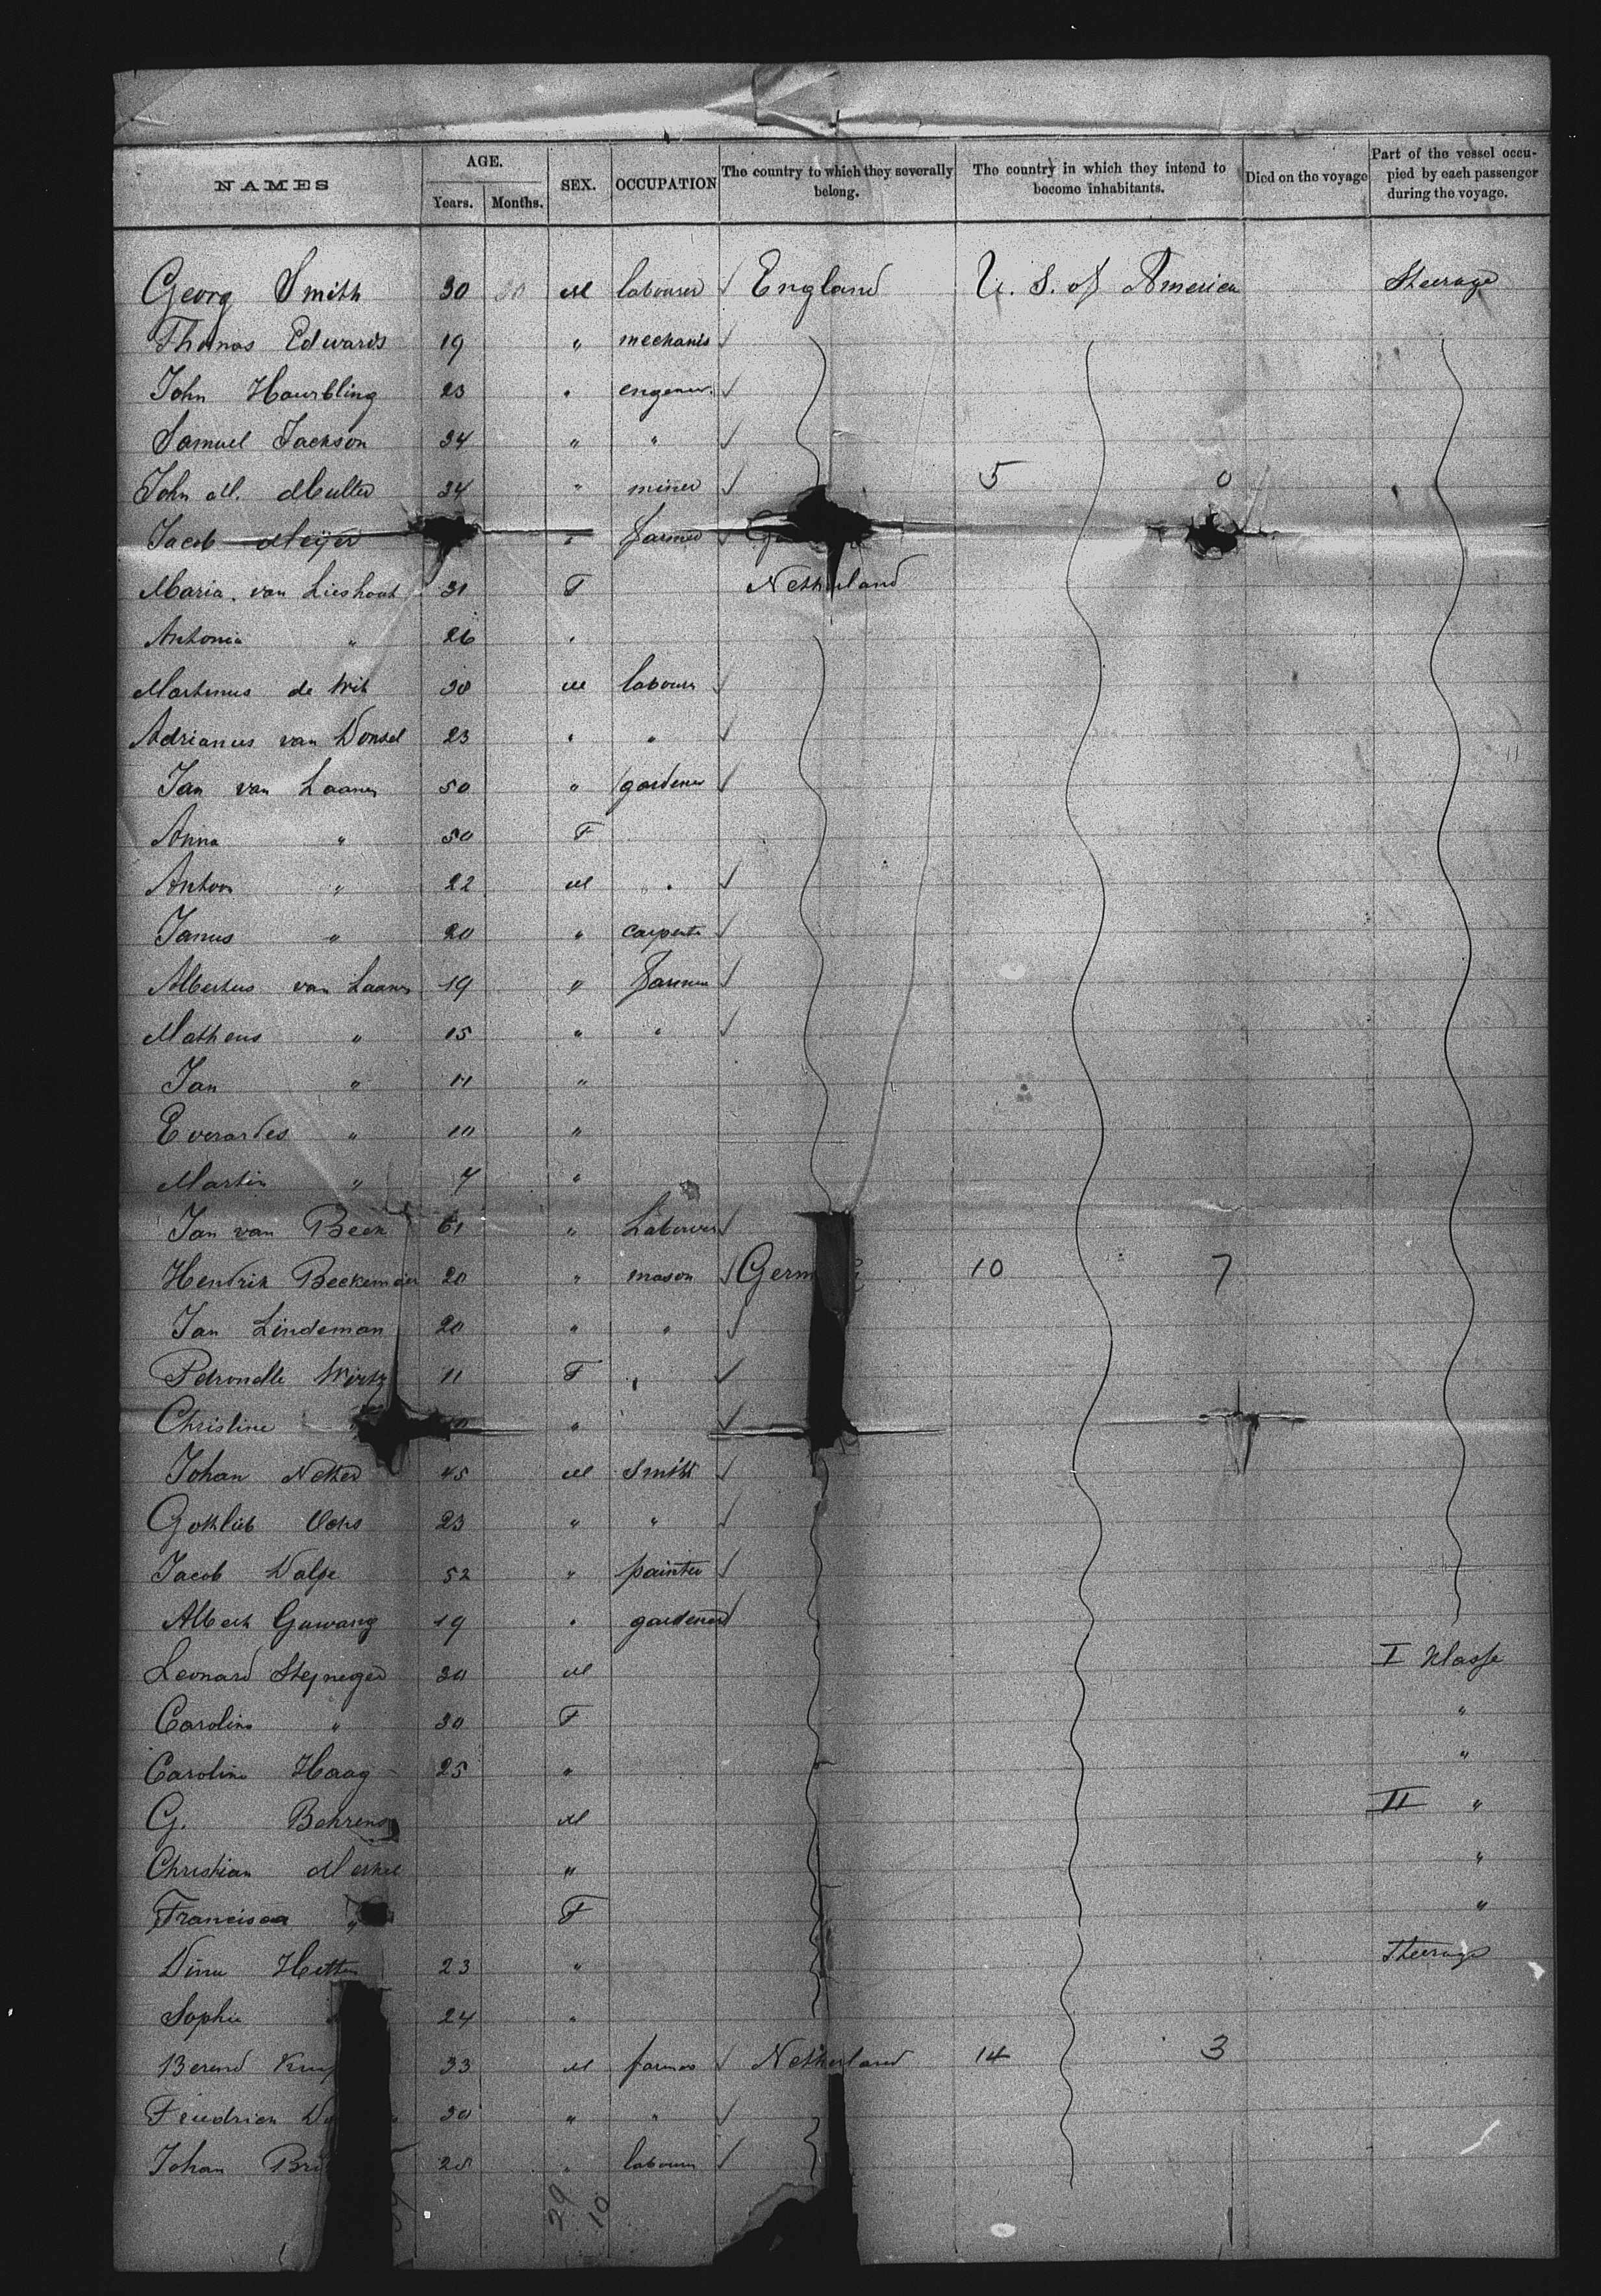 NAMES AGE. Years. Months. SEX. OCCUPATION The country to which they severally belong. The country in which they intend to become inhabitants. Died on the voyage Part of the vessel occupied by each passenger during the voyage.
Georg Smith 30 30 M labourer ✓ England U. S. of America Steerage
Thomas Edwards 19 " mechanis ✓
John Hourbling 23 " engener. ✓
Samuel Jackson 34 " " ✓
John M. Muller 34 " miner ✓ 5 0
Jacob Meijer " farmer ✓
Maria van Lieshout 31 F Netherland
Antonia " 26 "
Martinus de Wit 38 M labourer ✓
Adrianus van Donsel 23 " " ✓
Jan van Laanen 50 " gardener ✓
Anna " 50 F
Antoon " 22 M " ✓
Janus " 20 " carpenter ✓
Albertus van Laanen 19 " farmer ✓
Matheus " 15 " " ✓
Jan " 11 "
Everardes " 10 "
Martin " 7 "
Jan van Beek 61 " Labourer ✓
Hendrik Beekemeier 20 " mason ✓ Germ 10 7
Jan Lindeman 20 " " ✓
Petronelle Wirtz 11 F " ✓
Christine " ✓
Johan Nether 45 M Smith ✓
Gottlieb Ochs 23 " " ✓
Jacob Walpe 52 " painter ✓
Albert Gawang 19 " gardener ✓
Leonard Stejneger 30 M I Klasse
Carolina " 30 F "
Carolina Haag 25 " "
G. Behrens M II "
Christian Merkel " "
Francisca " F "
Dina Hetten 23 " Steerage
Sophie 24 "
Berend 33 M farmer ✓ Netherland 14 3
Friedrich 30 " " ✓
Johan 28 " labourer ✓
29 10